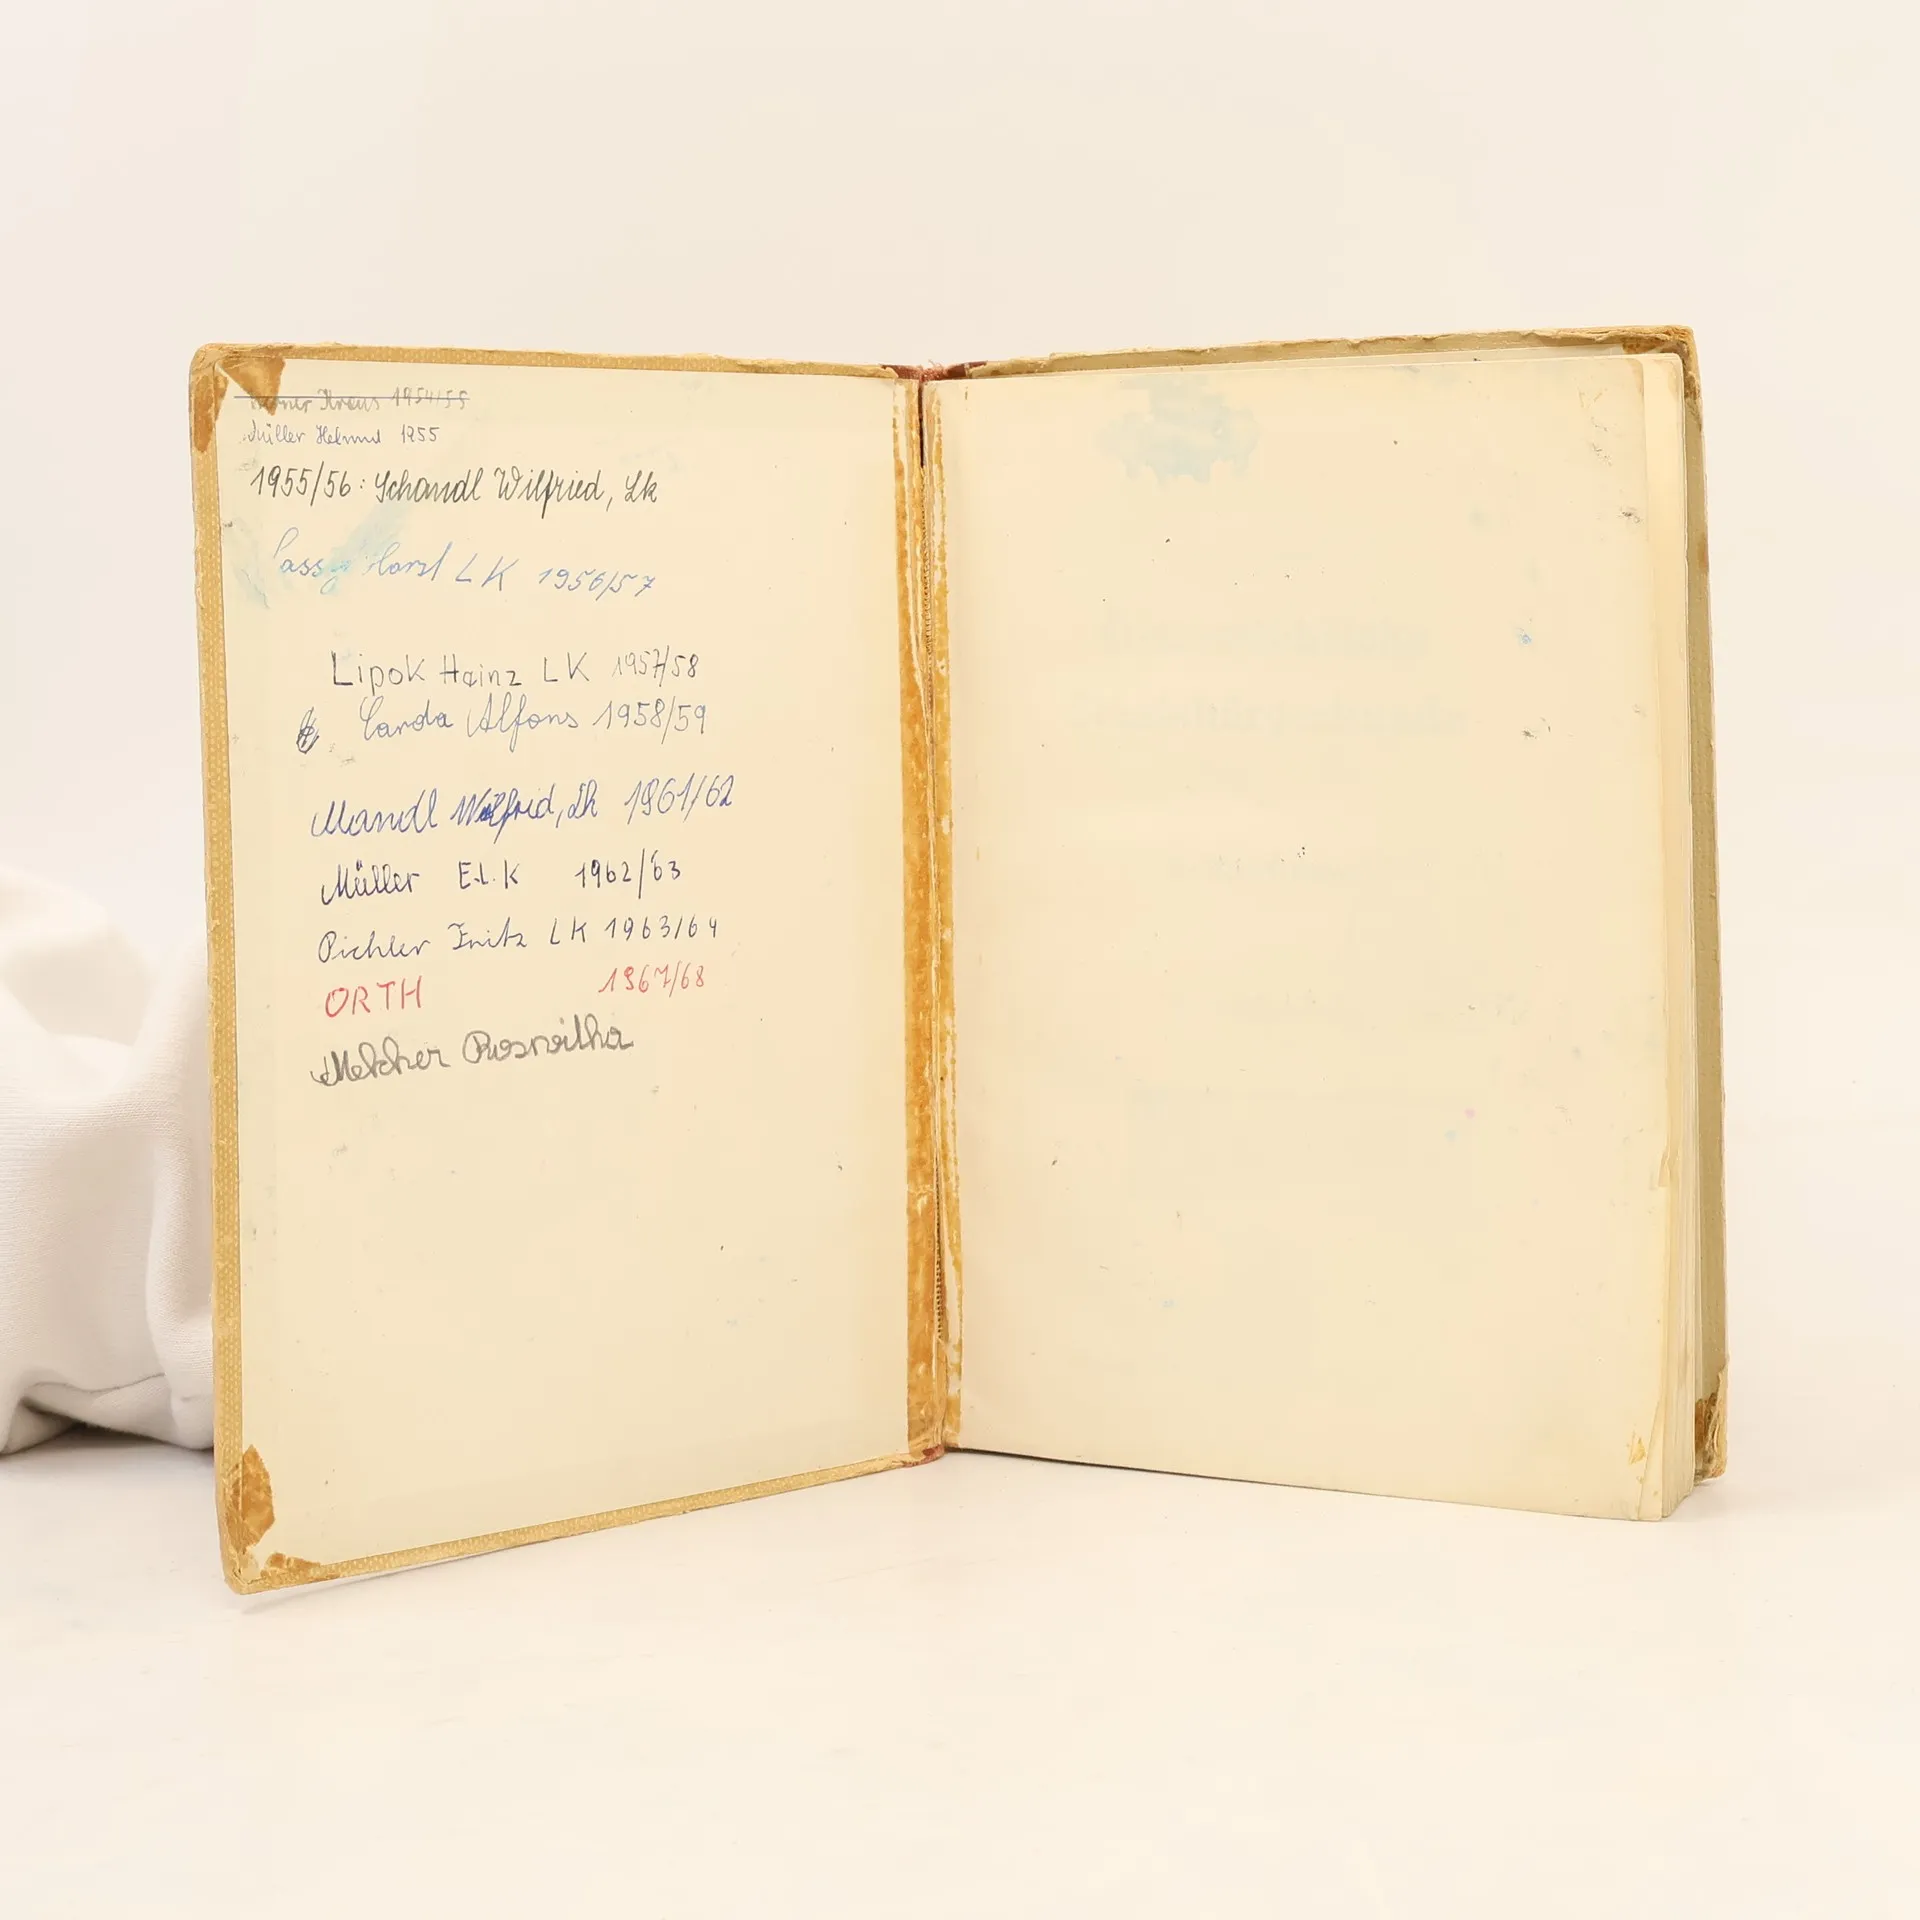 Werner Kraus 1954/55
Müller Helmut 1955
1955/56: Schandl Wilfried, Lk
Horst LK 1956/57
Lipok Heinz LK 1957/58
Carda Alfons 1958/59
Mandl Wilfrid, Lk 1961/62
Müller E.L.K 1962/63
Pichler Fritz LK 1963/64
ORTH 1967/68
Melcher Roswitha